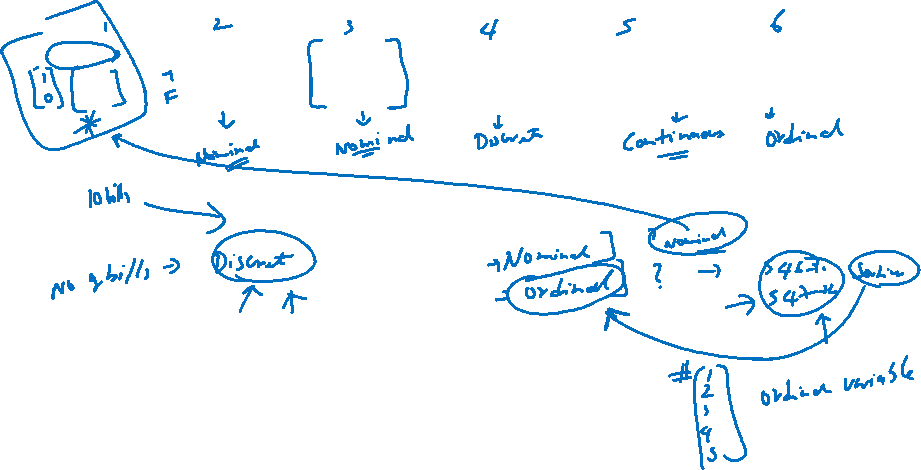 1 2 3 4 5 6
1
0
F
Nominal Nominal Discrete Continuous Ordinal
10 bills
No of bills → Discrete
Nominal
→ Nominal ? →
Ordinal
#
1
2
3
4
5
Ordinal variable